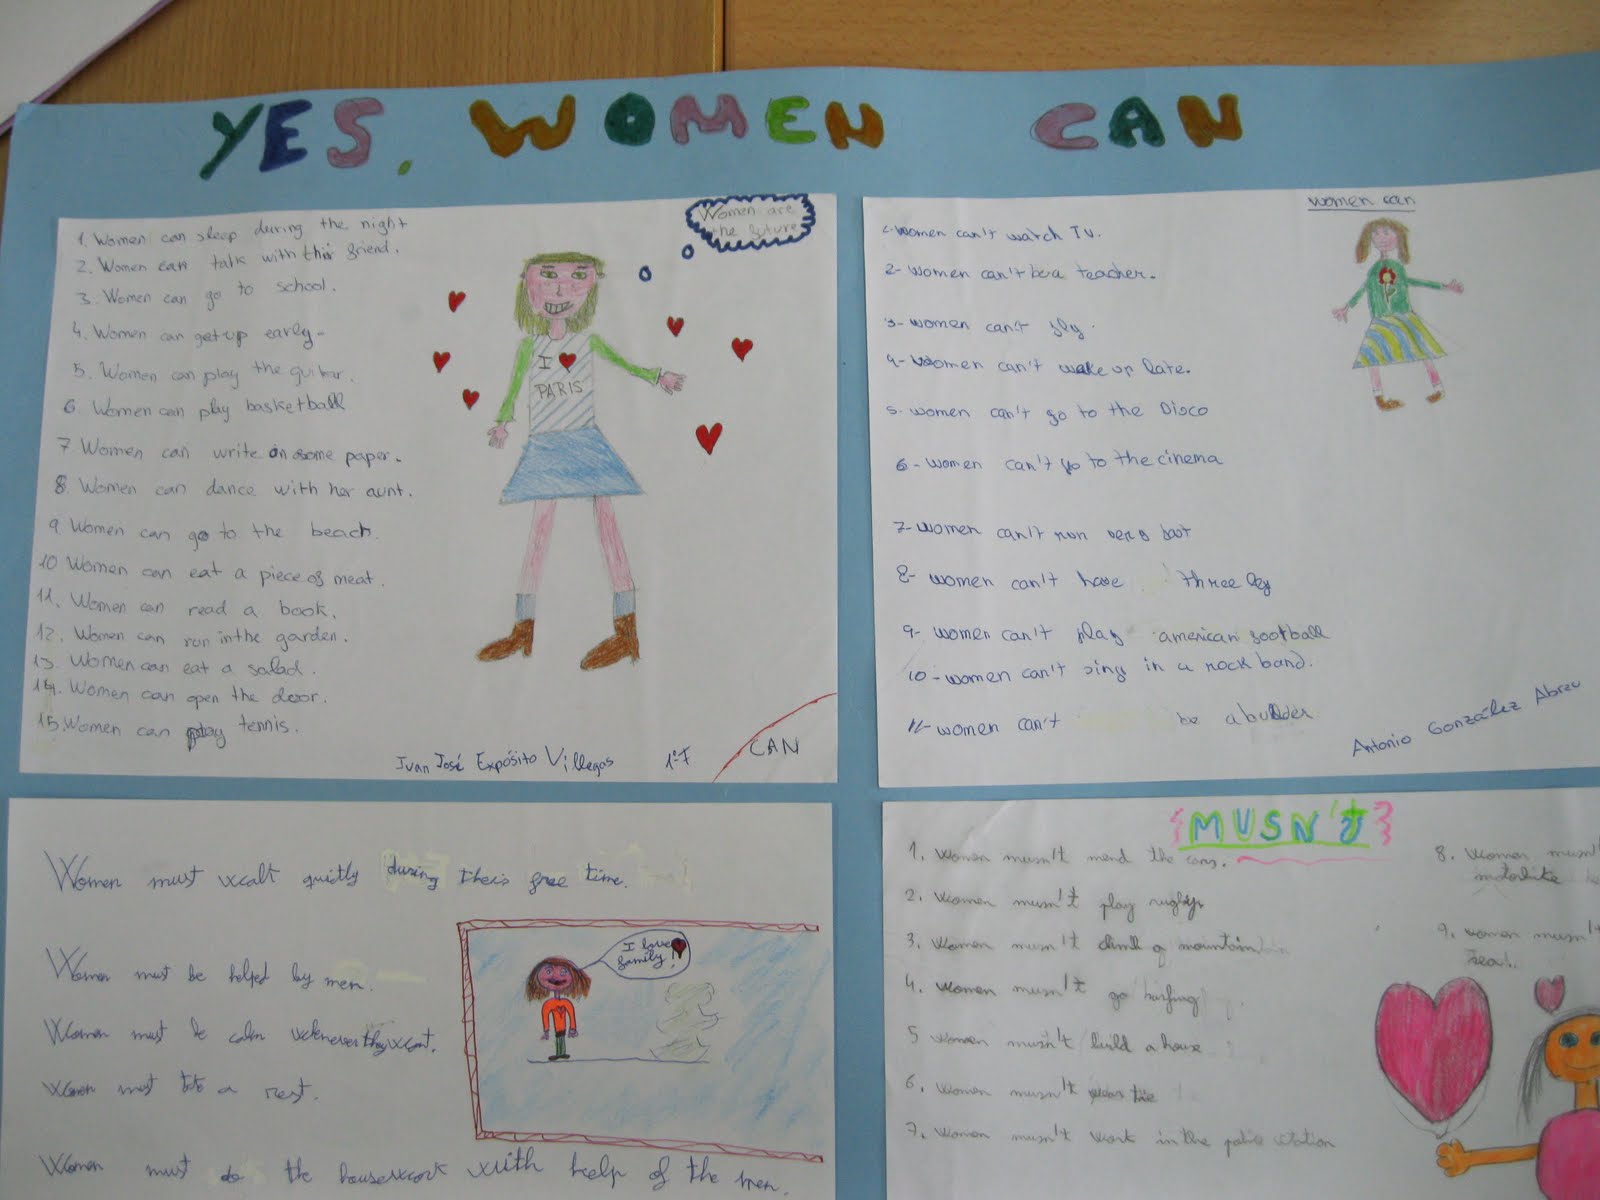 YES, WOMEN CAN
1. Women can sleep during the night
2. Women can talk with friend.
3. Women can go to school.
4. Women can get up early-
5. Women can play the guitar.
6. Women can play basketball
7 Women can write on some paper.
8. Women can dance with her aunt.
9 Women can go to the beach.
10 Women can eat a piece of meat.
11. Women can read a book.
12. Women can run in the garden.
13. Women can eat a salad.
14. Women can open the door.
15. Women can play tennis.
Women are
the future
I ♥
PARIS
Juan José Expósito Villegas 1º F
CAN
women can
women can't watch TV.
2- women can't be a teacher.
3- women can't fly.
4- Women can't wake up late.
5- women can't go to the Disco
6- women can't go to the cinema
7- women can't run very fast
8- women can't have three leg
9- women can't play american football
10- women can't sing in a rock band.
11- women can't be a builder
Antonio González Abreu
Women must quietly during free time.
Women must be helped by men.
Women must be calm
Women must a rest.
Women must do the housework with help of the men.
I love
family!
MUSN'T
1. Women musn't mend the cars.
2. Women musn't play rugby.
3. Women musn't climb a mountain
4. Women musn't go surfing
5 Women musn't build a house
6. Women musn't tie
7. Women musn't work in the police station
8. Women musn'
motorbike
9. women musn't